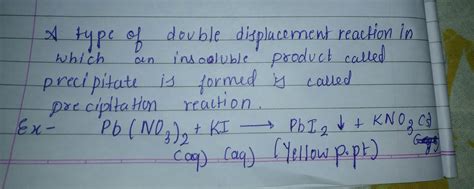 A type of double displacement reaction in
which an insoluble product called
precipitate is formed is called
precipitation reaction.
Ex- Pb(NO3)2 + KI → PbI2 ↓ + KNO3
(aq) (aq) (Yellow p.pt)